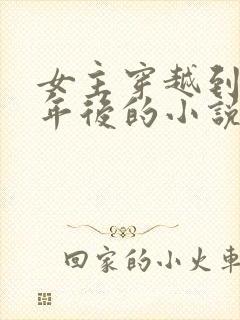 女主穿越到
年後的小説
回家的小火車